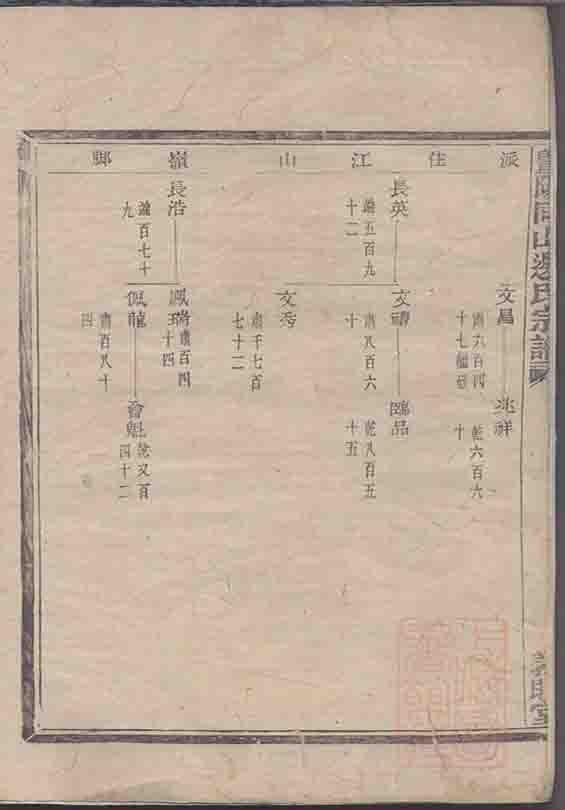 暨陽同山邊氏宗譜
派住江山嶺鄉
文昌
肅六百四
十七
兆祥
乾六百六
十
長英
謐五百九
十二
文疇
肅八百六
十
臨品
乾八百五
十五
文秀
肅千七百
七十二
長浩
謐百七十
九
鳳瑞
肅百四
十四
佩龍
肅百八十
四
會魁
乾又百
四十二